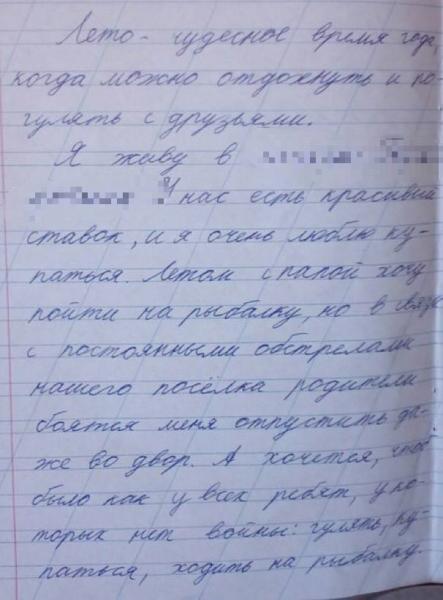 Лето - чудесное время года
когда можно отдохнуть и по
гулять с друзьями.
Я живу в
У нас есть красивый
ставок, и я очень люблю ку-
паться. Летом с папой хочу
пойти на рыбалку, но в связи
с постоянными обстрелами
нашего посёлка родители
боятся меня отпустить да-
же во двор. А хочется, чтоб
было как у всех ребят, у ко-
торых нет войны: гулять, ку-
паться, ходить на рыбалку.